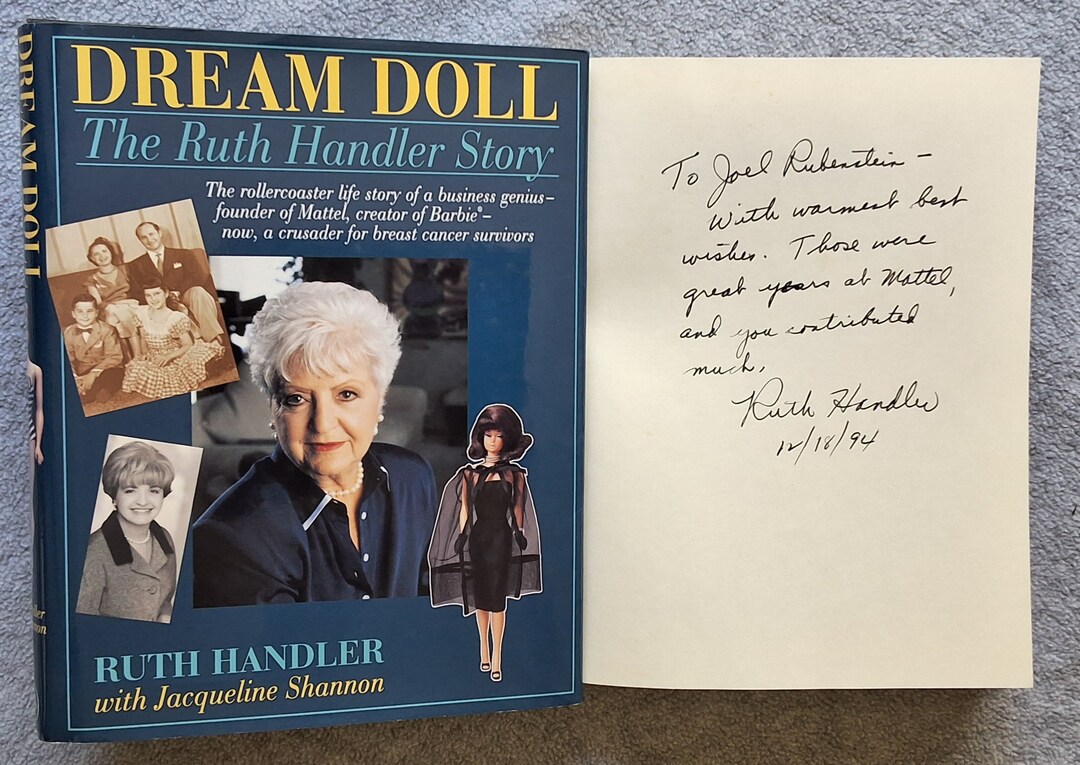 DREAM DOLL
DREAM DOLL
The Ruth Handler Story
The rollercoaster life story of a business genius–
founder of Mattel, creator of Barbie®–
now, a crusader for breast cancer survivors
RUTH HANDLER
with Jacqueline Shannon
To Joel Rubenstein –
With warmest best
wishes. Those were
great years at Mattel,
and you contributed
much,
Ruth Handler
12/18/94